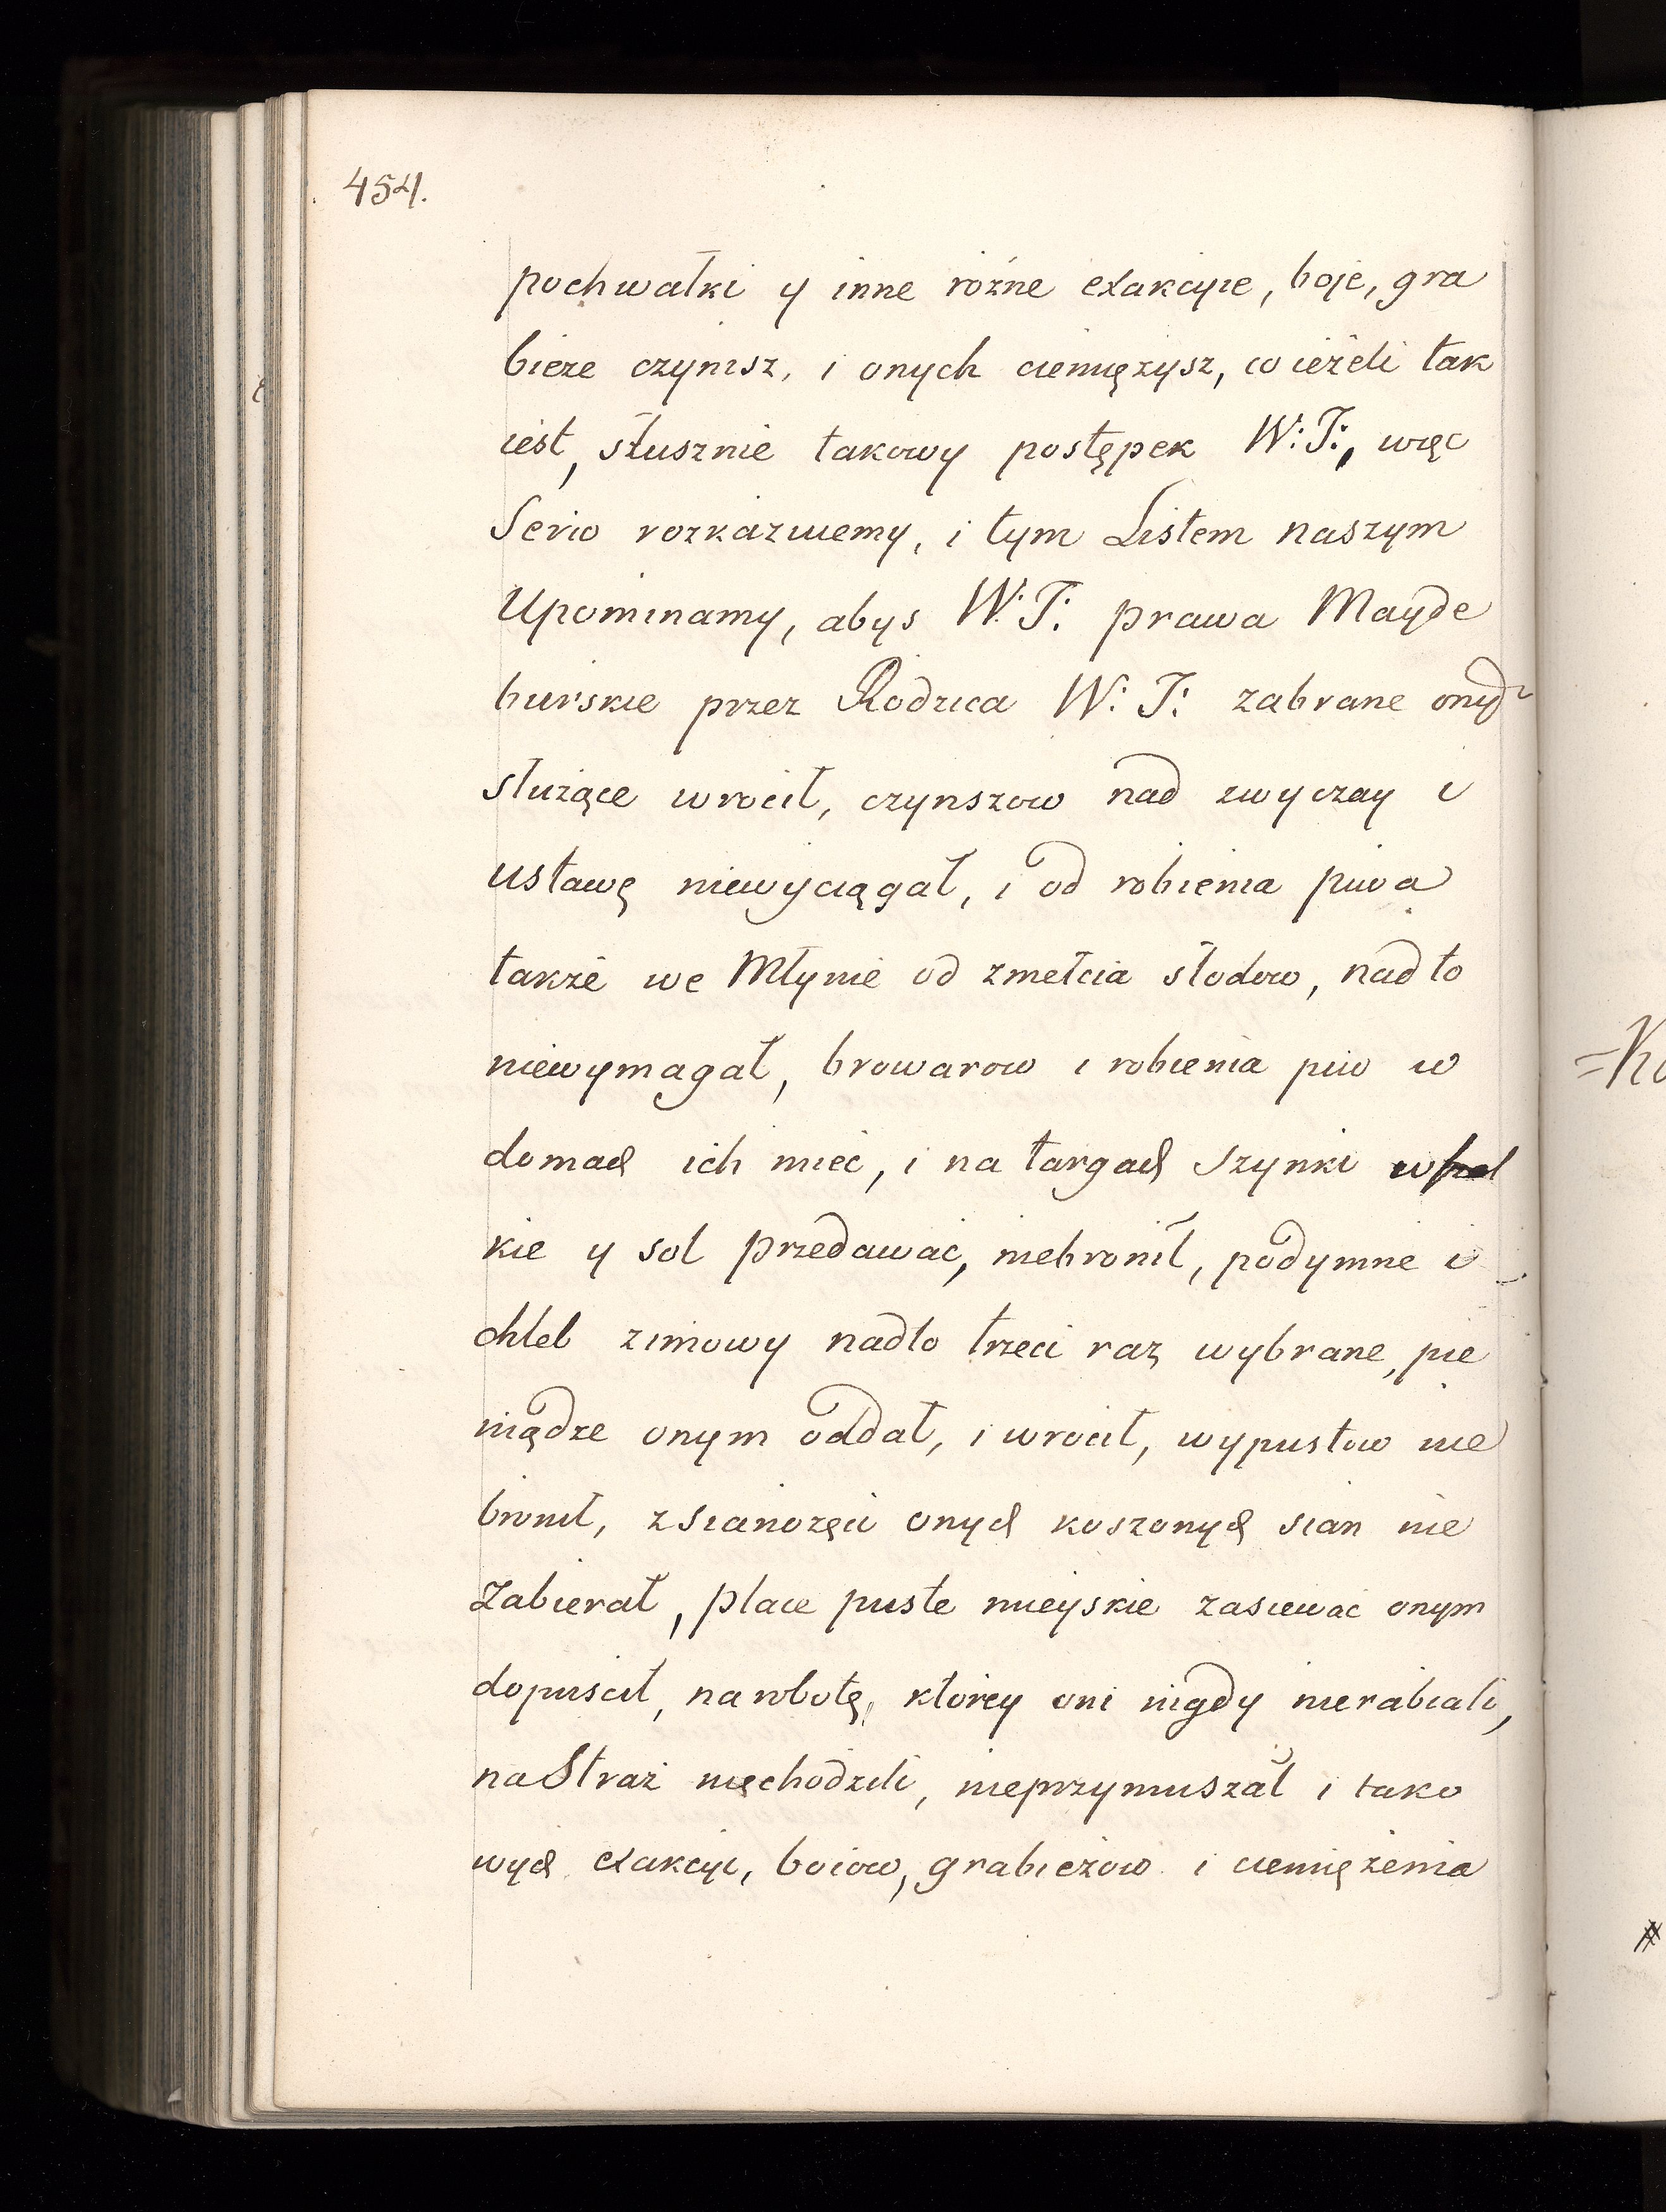 454.
pochwałki y inne rożne exakcyie, boje, gra
bieże czynisz, i onych ciemiężysz, co ieżeli tak
iest, słusznie takowy postępek W: T:, więc
Serio rozkazuiemy, i tym Listem naszym
Upominamy, abys W: T: prawa Mayde
burskie przez Rodzica W: T: zabrane onych
służące wrocił, czynszow nad zwyczay i
ustawę niewyciągał, i od robienia piwa
także we Młynie od zmełcia słodow, nad to
niewymagał, browarow i robienia piw w
domach ich mieć, i na targach Szynki
kie y sol przedawać, niebronił, podymne i
chleb zimowy nadto trzeci raz wybrane, pie
niądze onym oddał, i wrocił, wypustow nie
bronił, z sianożęci onych koszonych sian nie
zabierał, place puste mieyskie zasiewać onym
dopuscił, na robotę, ktorey oni nigdy nierabiali,
na Straż niechodzili, nieprzymuszał i tako
wych exakcyi, boiow, grabieżow i ciemiężenia